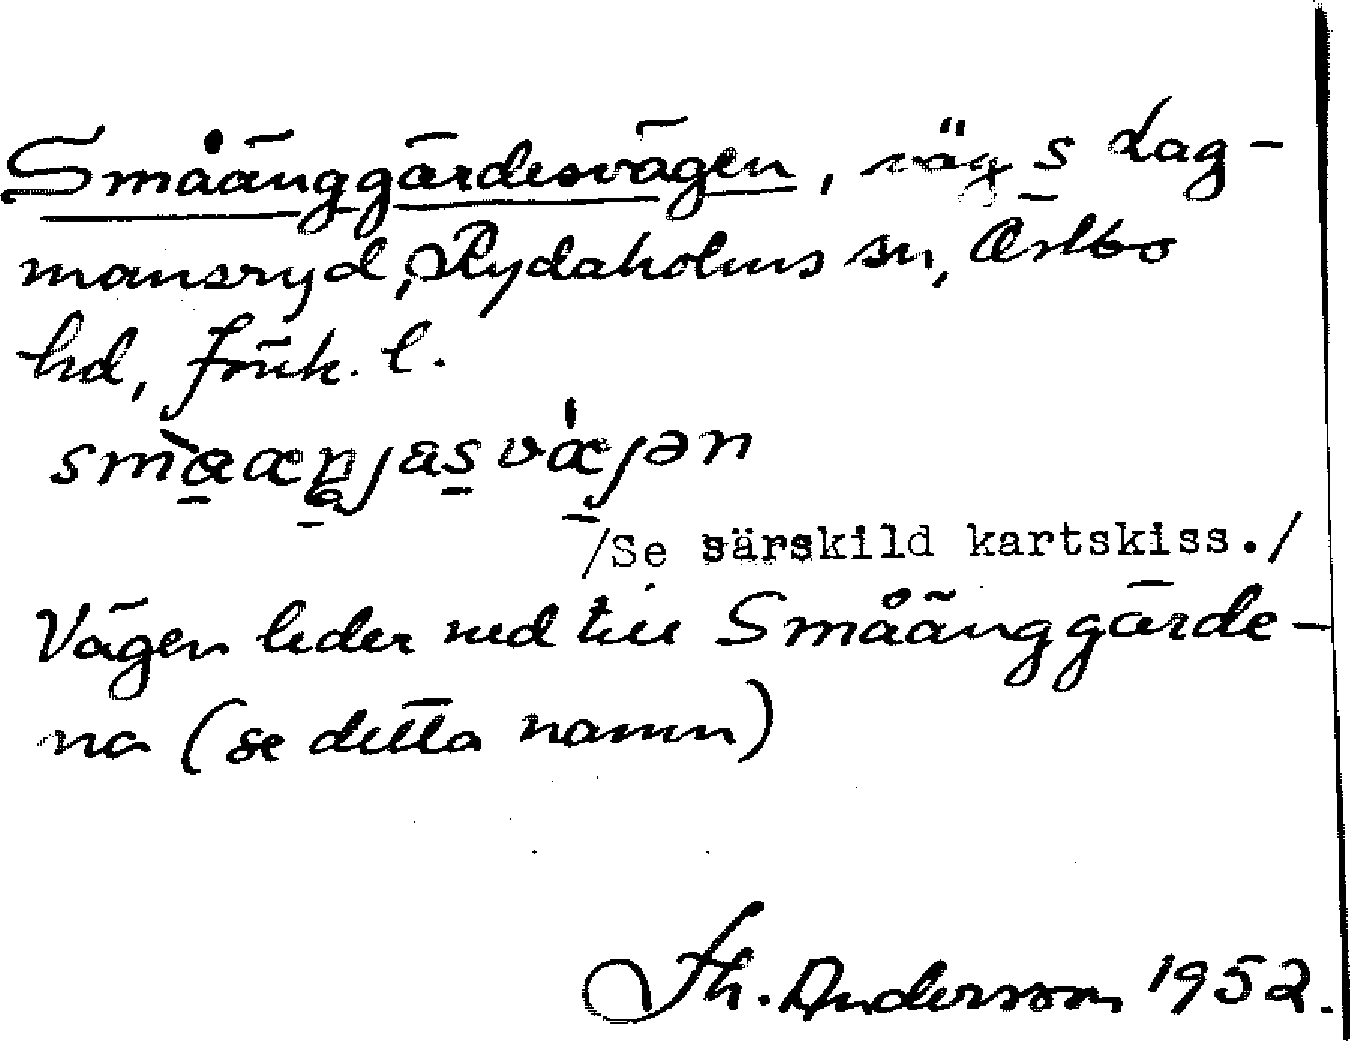 Småänggärdesvägen, väg s Dag-
mansryd, Rydaholms sn, Östbo
hd, Jönk. l.
/Se särskild kartskiss./
Vägen leder ned till Småänggärde-
na (se detta namn)
Th. Andersson 1952.